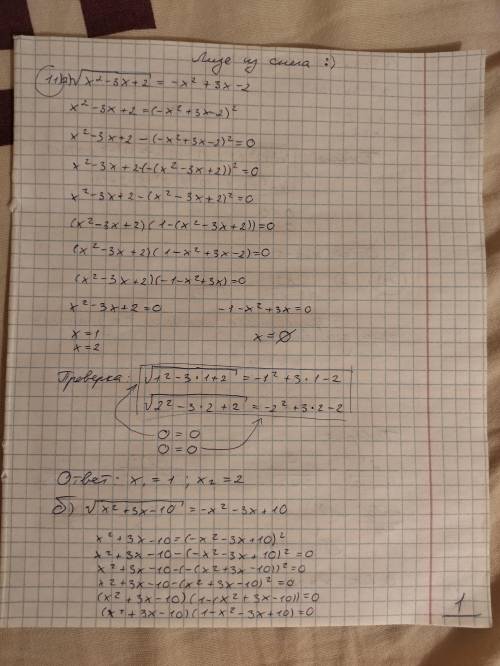 Лизе из снега :)
11 а) √(x² - 3x + 2) = -x² + 3x - 2
x² - 3x + 2 = (-x² + 3x - 2)²
x² - 3x + 2 - (-x² + 3x - 2)² = 0
x² - 3x + 2 - (-(x² - 3x + 2))² = 0
x² - 3x + 2 - (x² - 3x + 2)² = 0
(x² - 3x + 2)(1 - (x² - 3x + 2)) = 0
(x² - 3x + 2)(1 - x² + 3x - 2) = 0
(x² - 3x + 2)(-1 - x² + 3x) = 0
x² - 3x + 2 = 0 -1 - x² + 3x = 0
x = 1 x = ∅
x = 2
Проверка: √(1² - 3·1 + 2) = -1² + 3·1 - 2
√(2² - 3·2 + 2) = -2² + 3·2 - 2
0 = 0
0 = 0
Ответ: x₁ = 1; x₂ = 2
б) √(x² + 3x - 10) = -x² - 3x + 10
x² + 3x - 10 = (-x² - 3x + 10)²
x² + 3x - 10 - (-x² - 3x + 10)² = 0
x² + 3x - 10 - (-(x² + 3x - 10))² = 0
x² + 3x - 10 - (x² + 3x - 10)² = 0
(x² + 3x - 10)(1 - (x² + 3x - 10)) = 0
(x² + 3x - 10)(1 - x² - 3x + 10) = 0
1